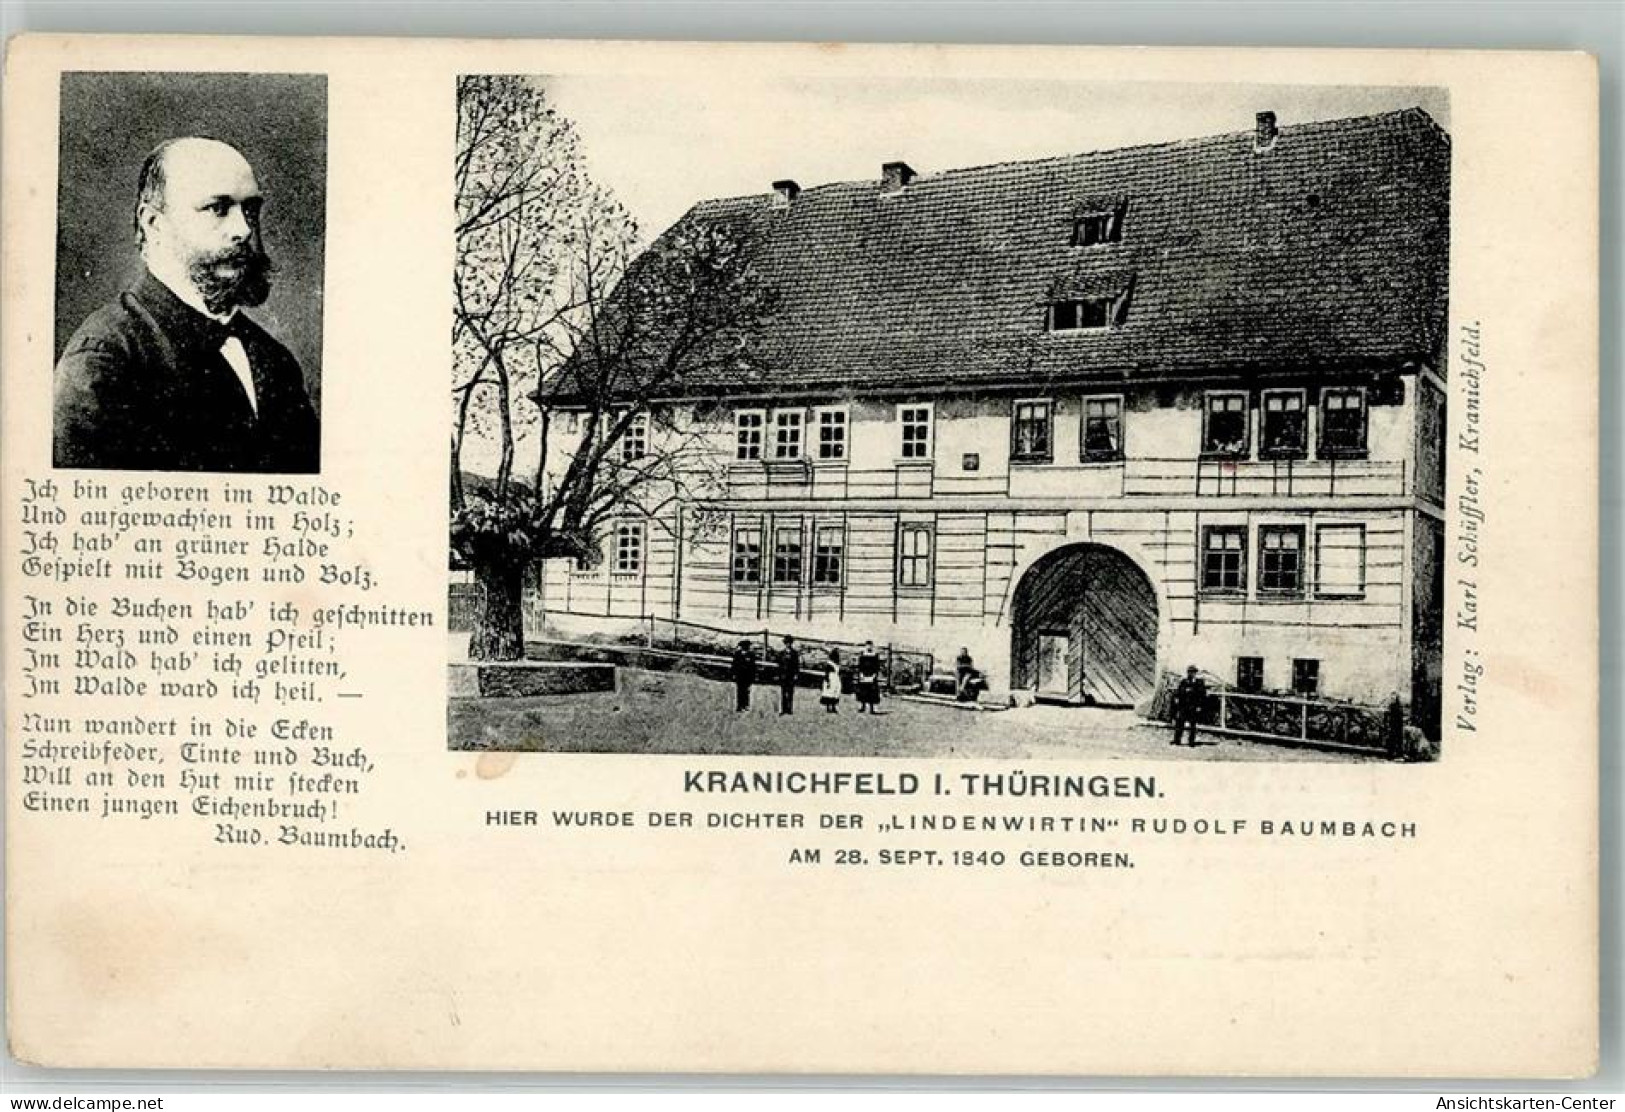 Ich bin geboren im Walde
Und aufgewachsen im Holz;
Ich hab' an grüner Halde
Gespielt mit Bogen und Bolz.
In die Buchen hab' ich geschnitten
Ein Herz und einen Pfeil;
Im Wald hab' ich gelitten,
Im Walde ward ich heil. —
Nun wandert in die Ecken
Schreibfeder, Tinte und Buch,
Will an den Hut mir stecken
Einen jungen Eichenbruch!
Rud. Baumbach.
KRANICHFELD I. THÜRINGEN.
HIER WURDE DER DICHTER DER „LINDENWIRTIN“ RUDOLF BAUMBACH
AM 28. SEPT. 1840 GEBOREN.
Verlag: Karl Schüffler, Kranichfeld.
www.delcampe.net
Ansichtskarten-Center